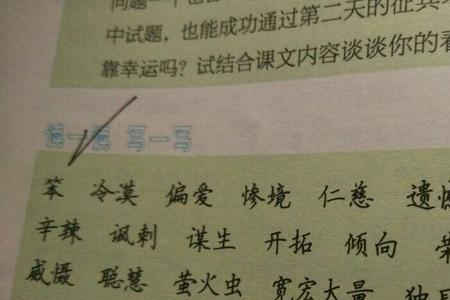 中试题，也能成功通过第二天的征兵
靠幸运吗？试结合课文内容谈谈你的看
读一读 写一写
笨 冷漠 偏爱 惨境 仁慈 遗憾
辛辣 讽刺 谋生 开拓 倾向
威慑 聪慧 萤火虫 宽宏大量